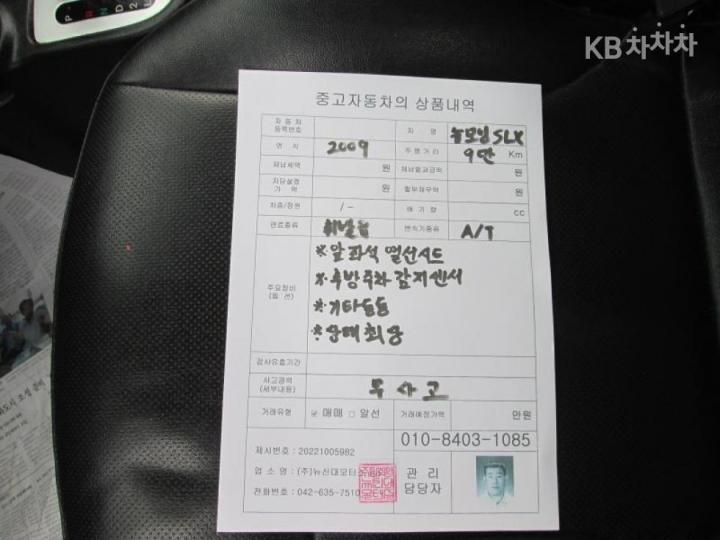 P R N D 2 L
KB차차차
중고자동차의 상품내역
자동차등록번호 차 명 뉴모닝 SLX
연 식 2009 주행거리 9만 Km
체납세액 원 체납범과금액 원
저당설정가액 원 할부채무액 원
차종/정원 / - 배기량 cc
연료종류 휘발유 변속기종류 A/T
주요장비(옵션)
※앞좌석 열선시트
※후방주차 감지센서
※기타등등
※상태최상
검사유효기간
사고경력(세부내용) 무사고
거래유형 매매 알선 거래예정가액 만원
010-8403-1085
제시번호 : 20221005982
업 소 명 : (주)뉴신대모터스
전화번호 : 042-635-7510
관 리
담당자